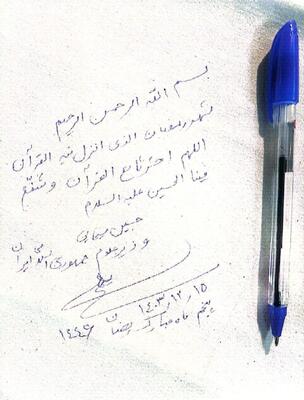 بسم الله الرحمن الرحیم
شهر رمضان الذی انزل فیه القرآن
اللهم احشرنا مع القرآن و شفّع
فینا الحسین علیه السلام
حسین سیمایی
وزیر علوم جمهوری اسلامی ایران
۱۴۰۳/۱۲/۱۵
پنجم ماه مبارک رمضان ۱۴۴۶